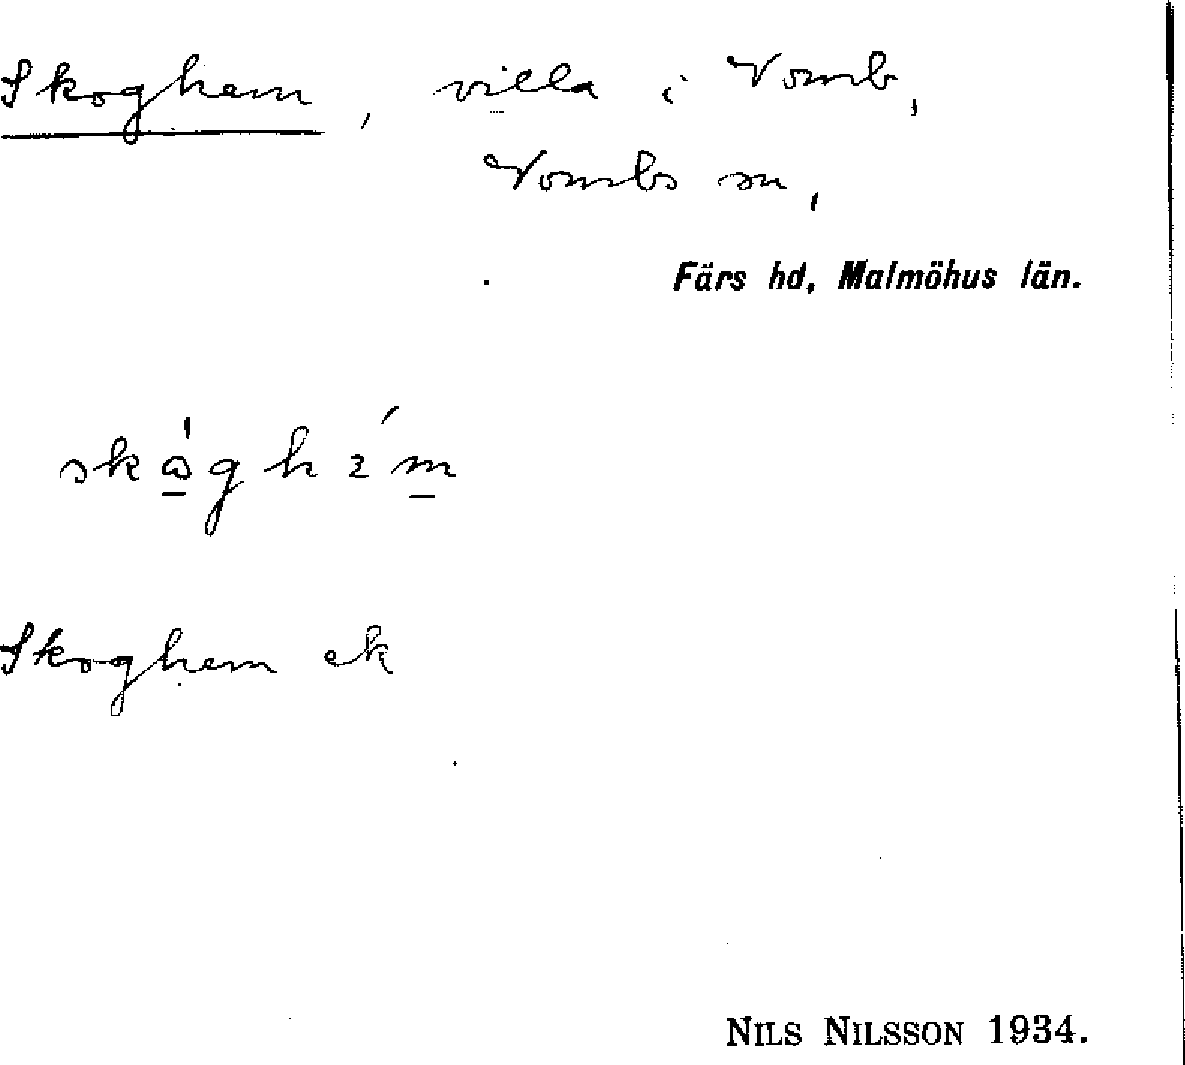 Skoghem, villa i Vomb,
Vombs sn,
Färs hd, Malmöhus län.
Skoghem ek
NILS NILSSON 1934.